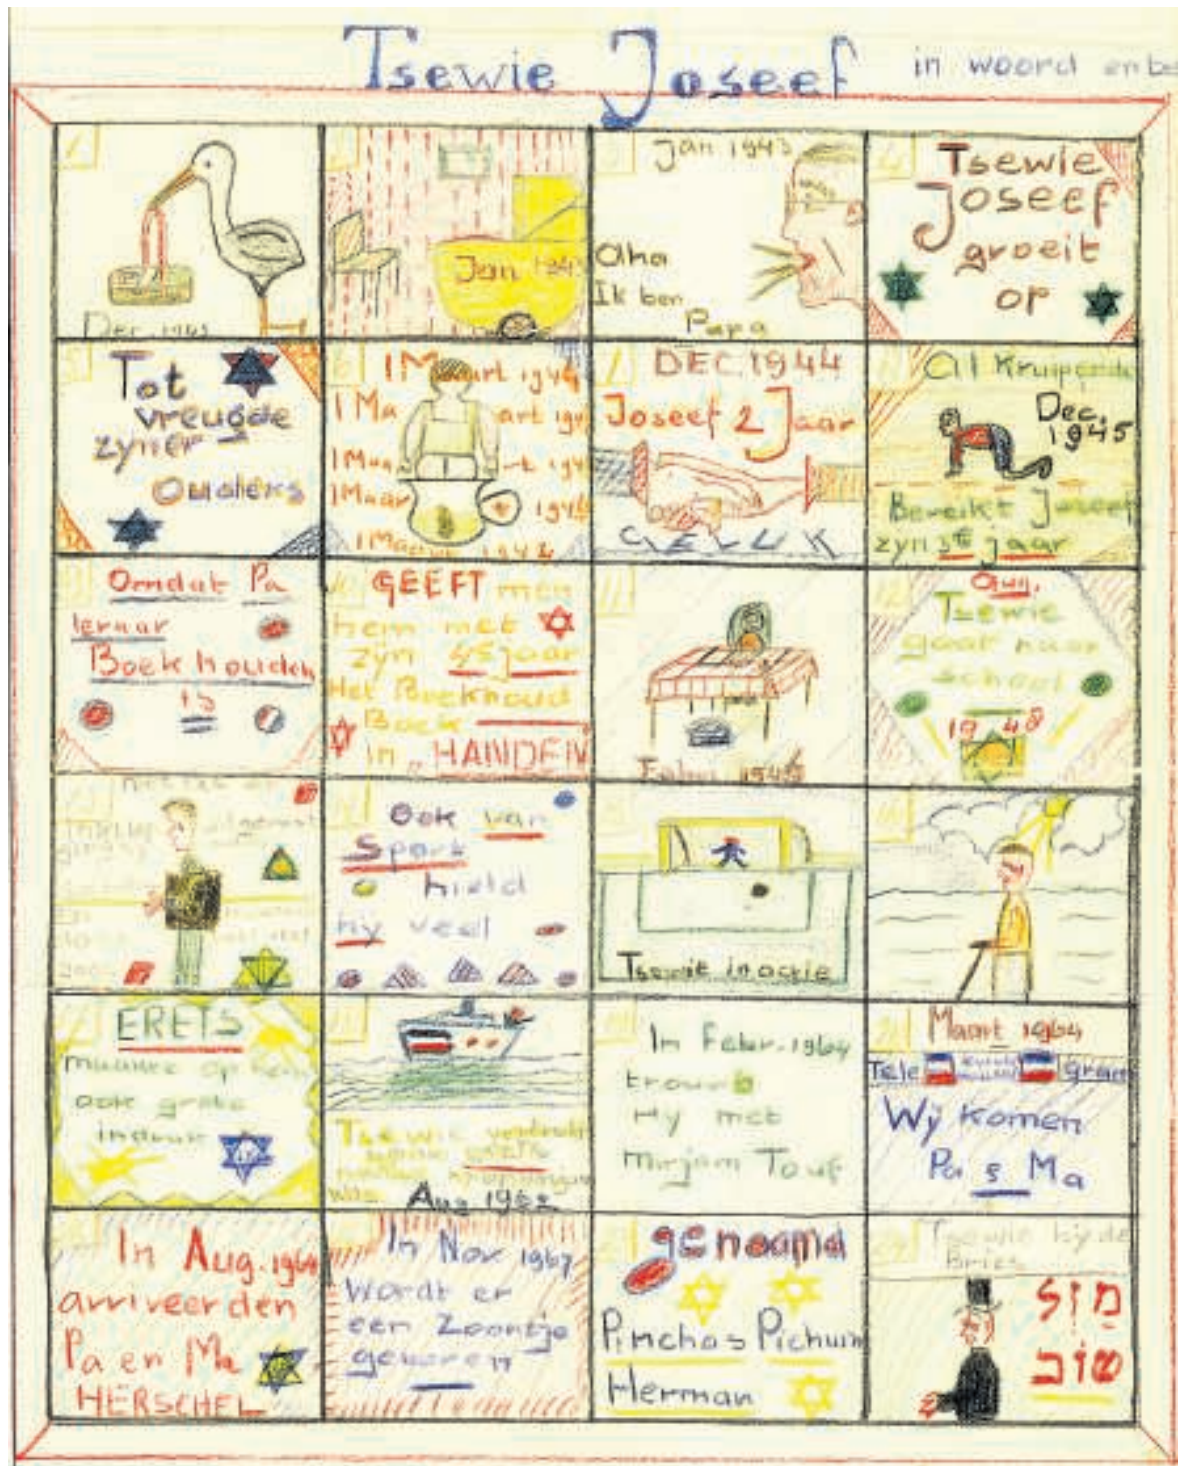 Tsewie Joseef in woord en be
1
Dec. 194
2
Jan 194
3
Jan 1943
Aha
Ik ben
Papa
4
Tsewie
Joseef
groeit
op
5
Tot
vreugde
zyner
Ouders
6
1 Maart 194
1 Ma art 194
1 Maa rt 194
1 Maar 194
1 Maart 194
7
DEC. 1944
Joseef 2 Jaar
GELUK
8
Al Kruipende
Dec.
1945
Bereikt Joseef
zyn 3e jaar
9
Omdat Pa
leraar
Boekhouden
is
10
GEEFT men
hem met
zyn jaar
Het Boekhoud
Boek
in „HANDEN
11
Febr. 194
12
Aug.
Tsewie
gaat naar
school
1948
Ook van
Sport
hield
hy veel
Tsewie in actie
ERETS
maakte op hem
ook grote
indruk
Tsewie
Aug 1962
In Febr. 1964
trouwt
Hy met
Mirjam Touf
Maart 1964
Tele gram
Wij komen
Pa & Ma
In Aug. 1964
arriveerden
Pa en Ma
HERSCHEL
In Nov 1967
Wordt er
een Zoontje
geboren
genaamd
Pinchas Pichum
Herman
Tsewie by de
Bries
מזל
טוב